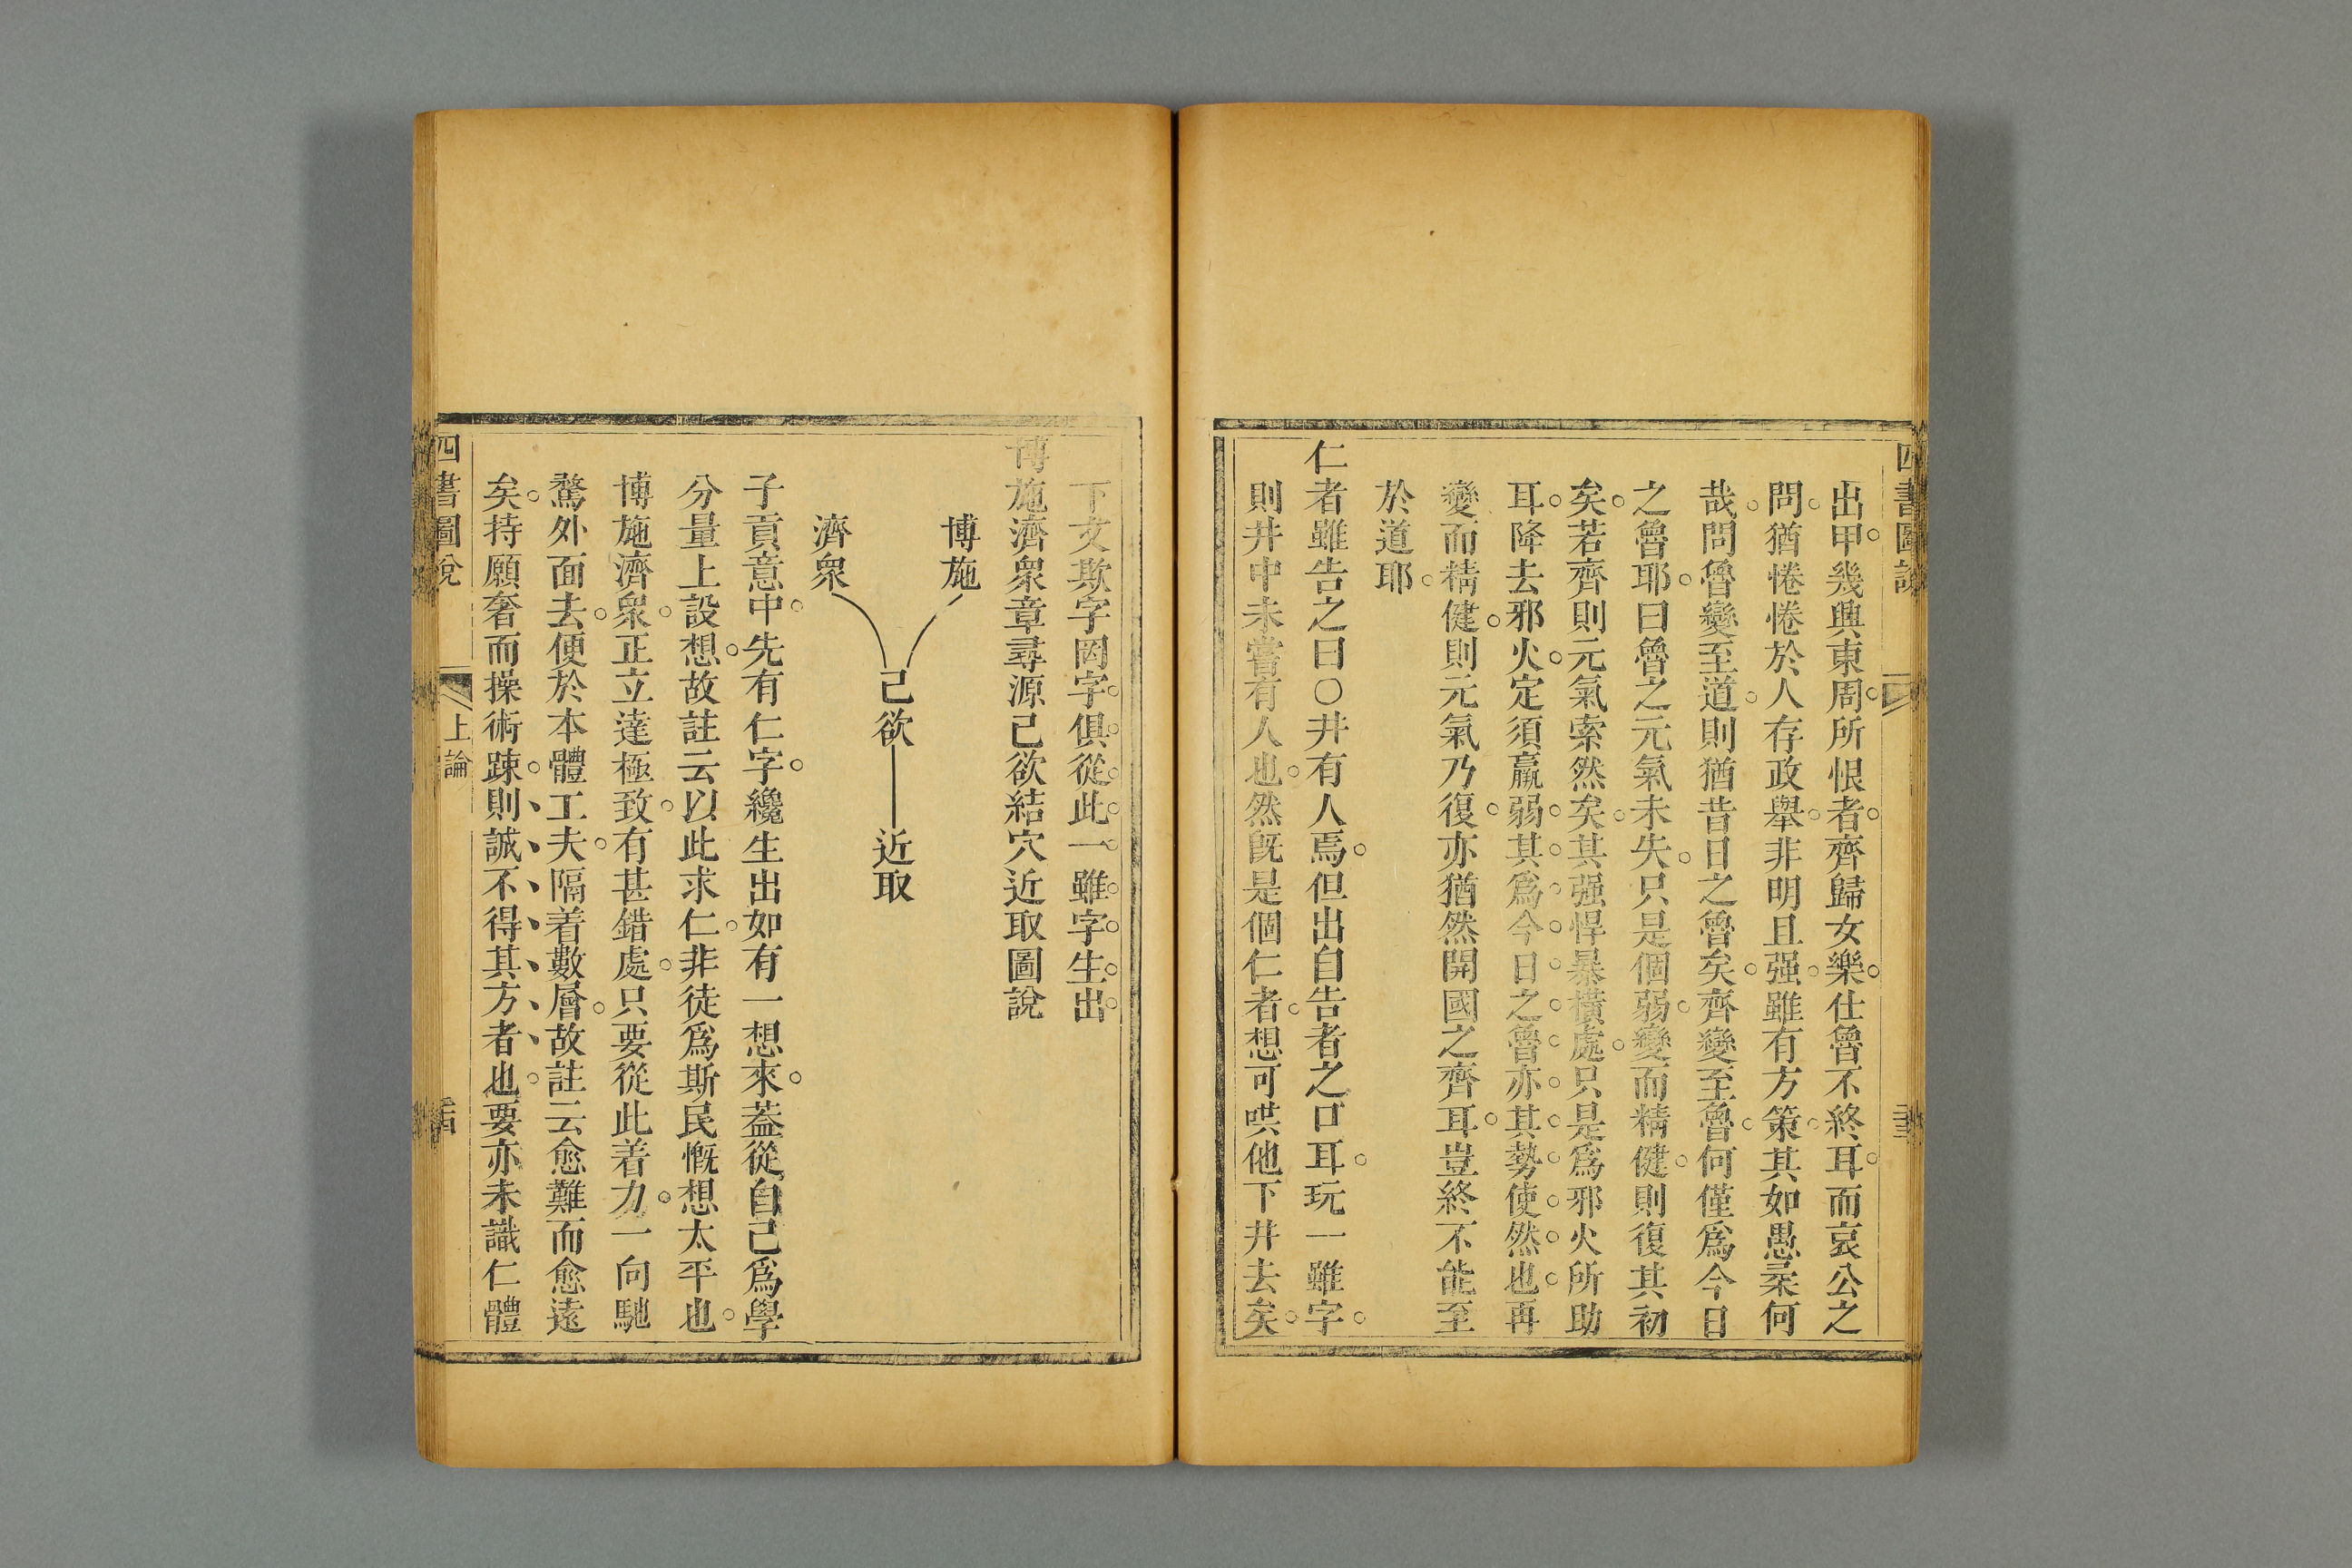 四書圖說
出甲幾興東周所恨者齊歸女樂仕魯不終耳而哀公之
問猶惓惓於人存政舉非明且强雖有方策其如愚柔何
哉問魯變至道則猶昔日之魯矣齊變至魯何僅爲今日
之魯耶曰魯之元氣未失只是個弱變而精健則復其初
矣若齊則元氣索然矣其强悍暴橫處只是爲邪火所助
耳降去邪火定須羸弱其爲今日之魯亦其勢使然也再
變而精健則元氣乃復亦猶然開國之齊耳豈終不能至
於道耶
仁者雖告之曰○井有人焉但出自告者之口耳玩一雖字
則井中未嘗有人也然旣是個仁者想可哄他下井去矣
下文欺字罔字俱從此一雖字生出
博施濟衆章尋源己欲結穴近取圖說
博施
己欲
近取
濟衆
子貢意中先有仁字纔生出如有一想來葢從自己爲學
分量上設想故註云以此求仁非徒爲斯民慨想太平也
博施濟衆正立達極致有甚錯處只要從此着力一向馳
騖外面去便於本體工夫隔着數層故註云愈難而愈遠
矣持願奢而操術踈則誠不得其方者也要亦未識仁體
四書圖說
上論